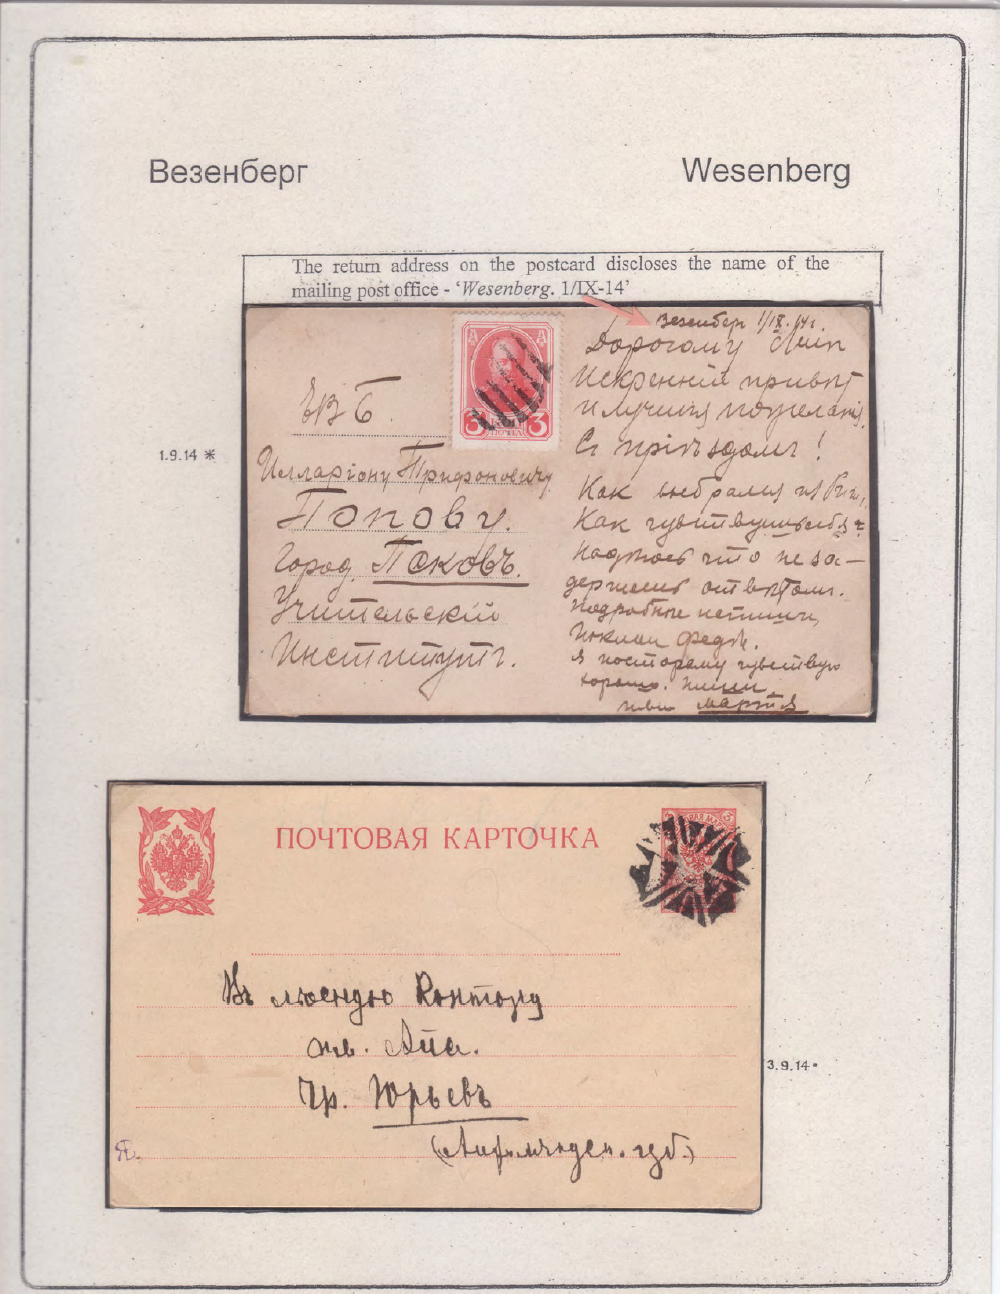 Везенберг
Wesenberg
The return address on the postcard discloses the name of the
mailing post office - 'Wesenberg. 1/IX-14'
Везенберг 1/IX.14г.
Дорогому
Искренній привѣт
и лучшія пожеланія
Съ пріѣздомъ!
Какъ выбрались из Риги,
Какъ чувствуешь себя?
Надѣюсь что не за-
держишь отвѣтом.
Подробные напиши,
я по старому чувствую
хорошо. пиши
Мартъ
ЕВБ.
Илларіону Трифоновичу
Попову.
Город Псковъ.
Учительскій
Институтъ.
3
3
1.9.14 *
ПОЧТОВАЯ КАРТОЧКА
Въ Контору
Аиа.
Гр. Юрьевъ
(Лифляндск. губ.)
3.9.14